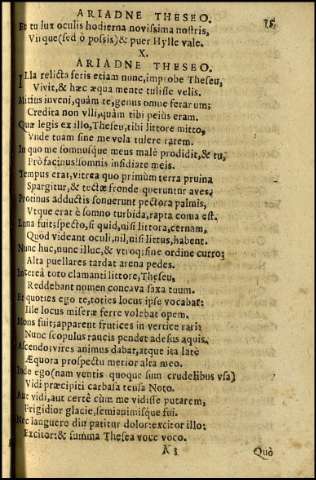 ARIADNE THESEO.
75
Et tu lux oculis hodierna novissima nostris,
Virque (sed ô possis) & puer Hylle vale.
X.
ARIADNE THESEO.
Illa relicta feris etiam nunc, improbe Theseu,
Vivit, & hæc æqua mente tulisse velis.
Mitius inveni, quàm te, genus omne ferarum;
Credita non ulli, quàm tibi peius eram.
Quæ legis ex illo, Theseu, tibi littore mitto,
Vnde tuam sine me vola tulere ratem.
In quo me somnusque meus malè prodidit, & tu,
Pro facinus! somnis insidiate meis.
Tempus erat, vitrea quo primùm terra pruina
Spargitur, & tectæ fronde queruntur aves.
Protinus adductis sonuerunt pectora palmis,
Vtque erat è somno turbida, rapta coma est.
Luna fuit; specto, si quid, nisi littora, cernam,
Quod videant oculi, nil, nisi littus, habent.
Nunc huc, nunc illuc, & utroq; sine ordine curro;
Alta puellares tardat arena pedes.
Interea toto clamanti littore, Theseu,
Reddebant nomen concava saxa tuum.
Et quoties ego te, toties locus ipse vocabat:
Ille locus miseræ ferre volebat opem.
Mons fuit; apparent frutices in vertice rari:
Nunc scopulus raucis pendet adesus aquis.
Ascendo; vires animus dabat, atque ita latè
Æquora prospectu metior alta meo.
Inde ego (nam ventis quoque sum crudelibus usa)
Vidi præcipiti carbasa tensa Noto.
Aut vidi, aut certè cùm me vidisse putarem,
Frigidior glacie, semianimisque fui.
Nec languere diu patitur dolor: excitor illo:
Excitor: & summa Thesea voce voco.
K 3
Quò